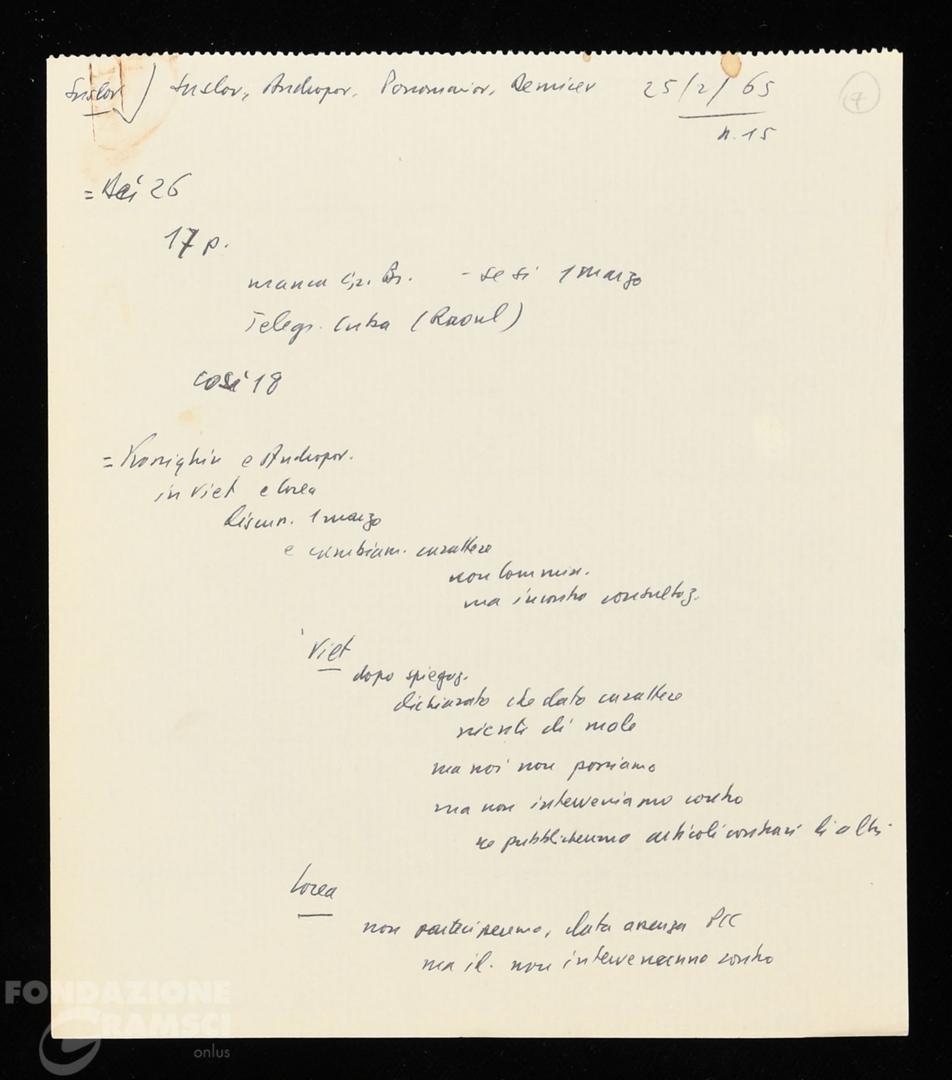 Suslov) Suslov, Andropov, Ponomariov, Demicev 25/2/65 7
n. 15
= Dei 26
17 p.
manca Gr. Br. - se si 1 marzo
Telegr. Cuba (Raoul)
così 18
= Kossighin e Andropov.
in Viet e Corea
discus. 1 marzo
e cambiam. carattere
non Commiss.
ma incontro consultaz.
Viet
dopo spiegaz.
dichiarato che dato carattere
niente di male
ma noi non possiamo
ma non interveniamo contro
né pubblicheremo articoli contrari di altri
Corea
non parteciperemo, data assenza PCC
ma id. non interverranno contro
FONDAZIONE
GRAMSCI
onlus